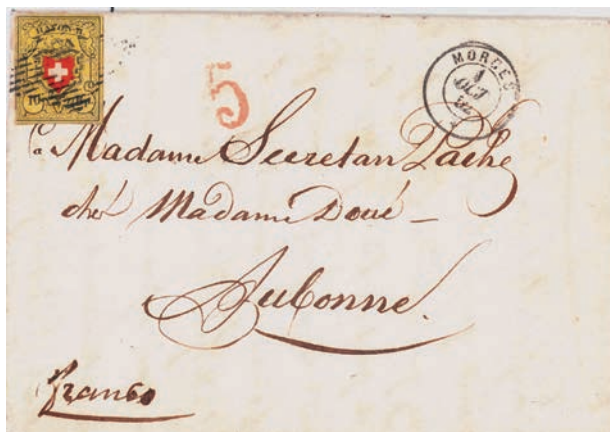 RAYON II
10
5
MORGES
1
OCT
52
A Madame Secretan Pache
chez Madame Doué
Aubonne.
franco